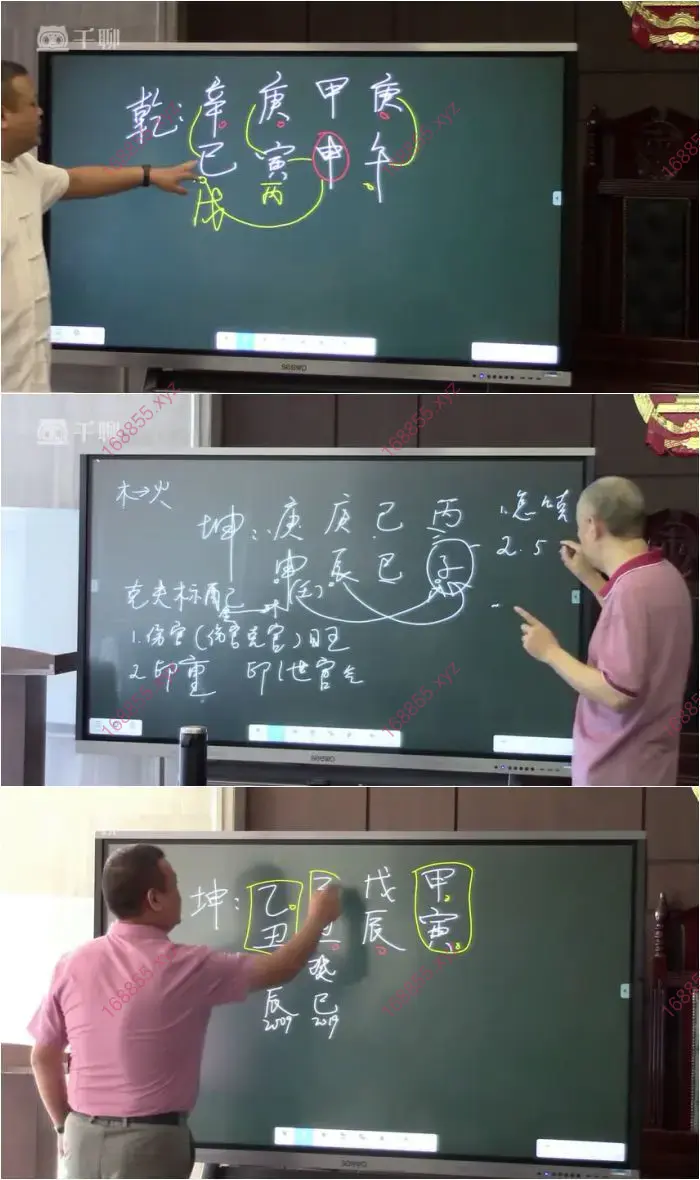 千聊
乾: 辛 庚 甲 庚
巳 寅 申 午
戌 丙
seewo
168855.xyz
千聊
木→火
坤: 庚 庚 己 丙
申 辰 巳 子
2. 5
克夫标配
1. 伤官(伤官克官)旺
2. 印重 印泄官气
seewo
168855.xyz
坤: 乙 戊 甲
丑 丑 辰 寅
辰 巳
2009 2019
seewo
168855.xyz